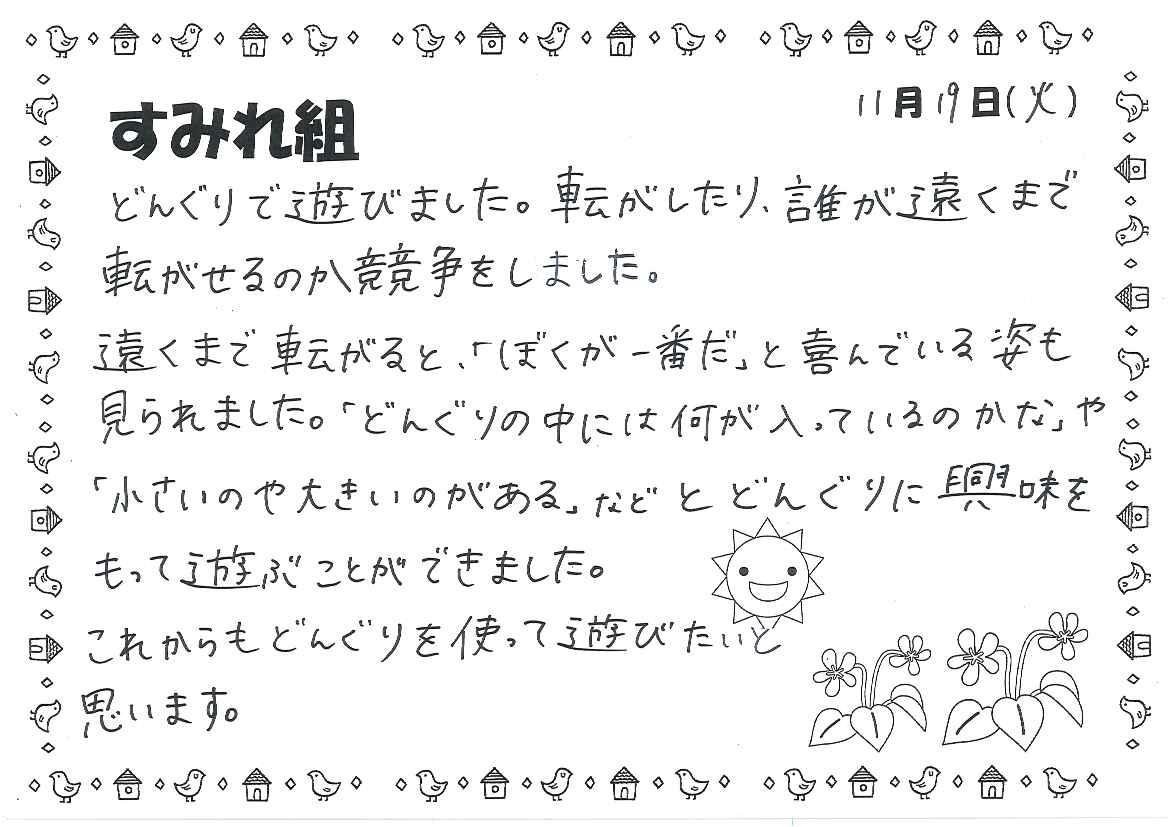 すみれ組
11月19日(火)
どんぐりで遊びました。転がしたり、誰が遠くまで
転がせるのか競争をしました。
遠くまで転がると、「ぼくが一番だ」と喜んでいる姿も
見られました。「どんぐりの中には何が入っているのかな」や
「小さいのや大きいのがある」などとどんぐりに興味を
もって遊ぶことができました。
これからもどんぐりを使って遊びたいと
思います。